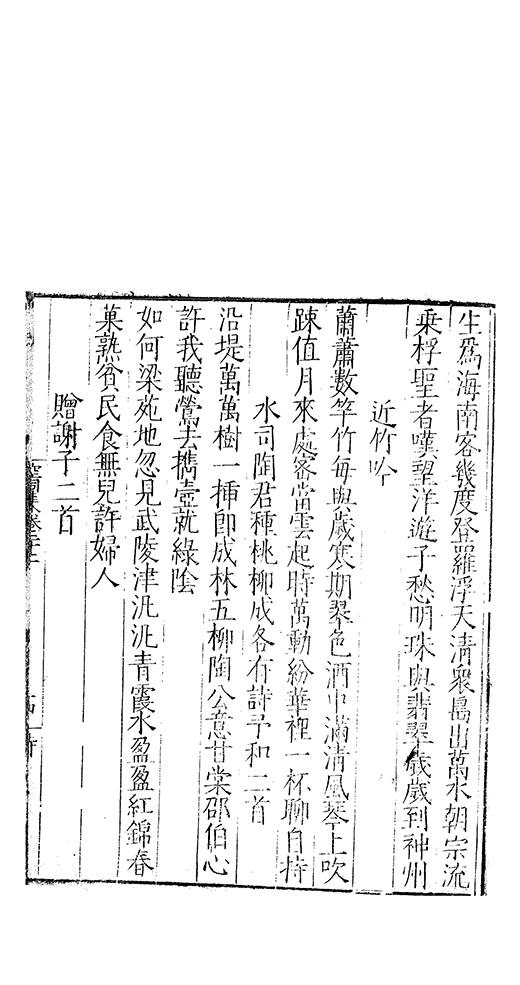 生爲海南客幾度登羅浮天清衆岳出萬水朝宗流
乘桴聖者嘆望洋遊子愁明珠與翡翠歲歲到神州
近竹吟
蕭蕭數竿竹每與歲寒期翠色酒中滿清風琴上吹
踈值月來處密當雲起時萬動紛華裡一杯聊自持
水司陶君種桃柳成各有詩予和二首
沿堤萬萬樹一揷卽成林五柳陶公意甘棠邵伯心
許我聽鶯去携壺就綠陰
如何梁苑地忽見武陵津泚泚青霞水盈盈紅錦春
菓熟貧民食無兒許婦人
贈謝子二首
空同集卷二十